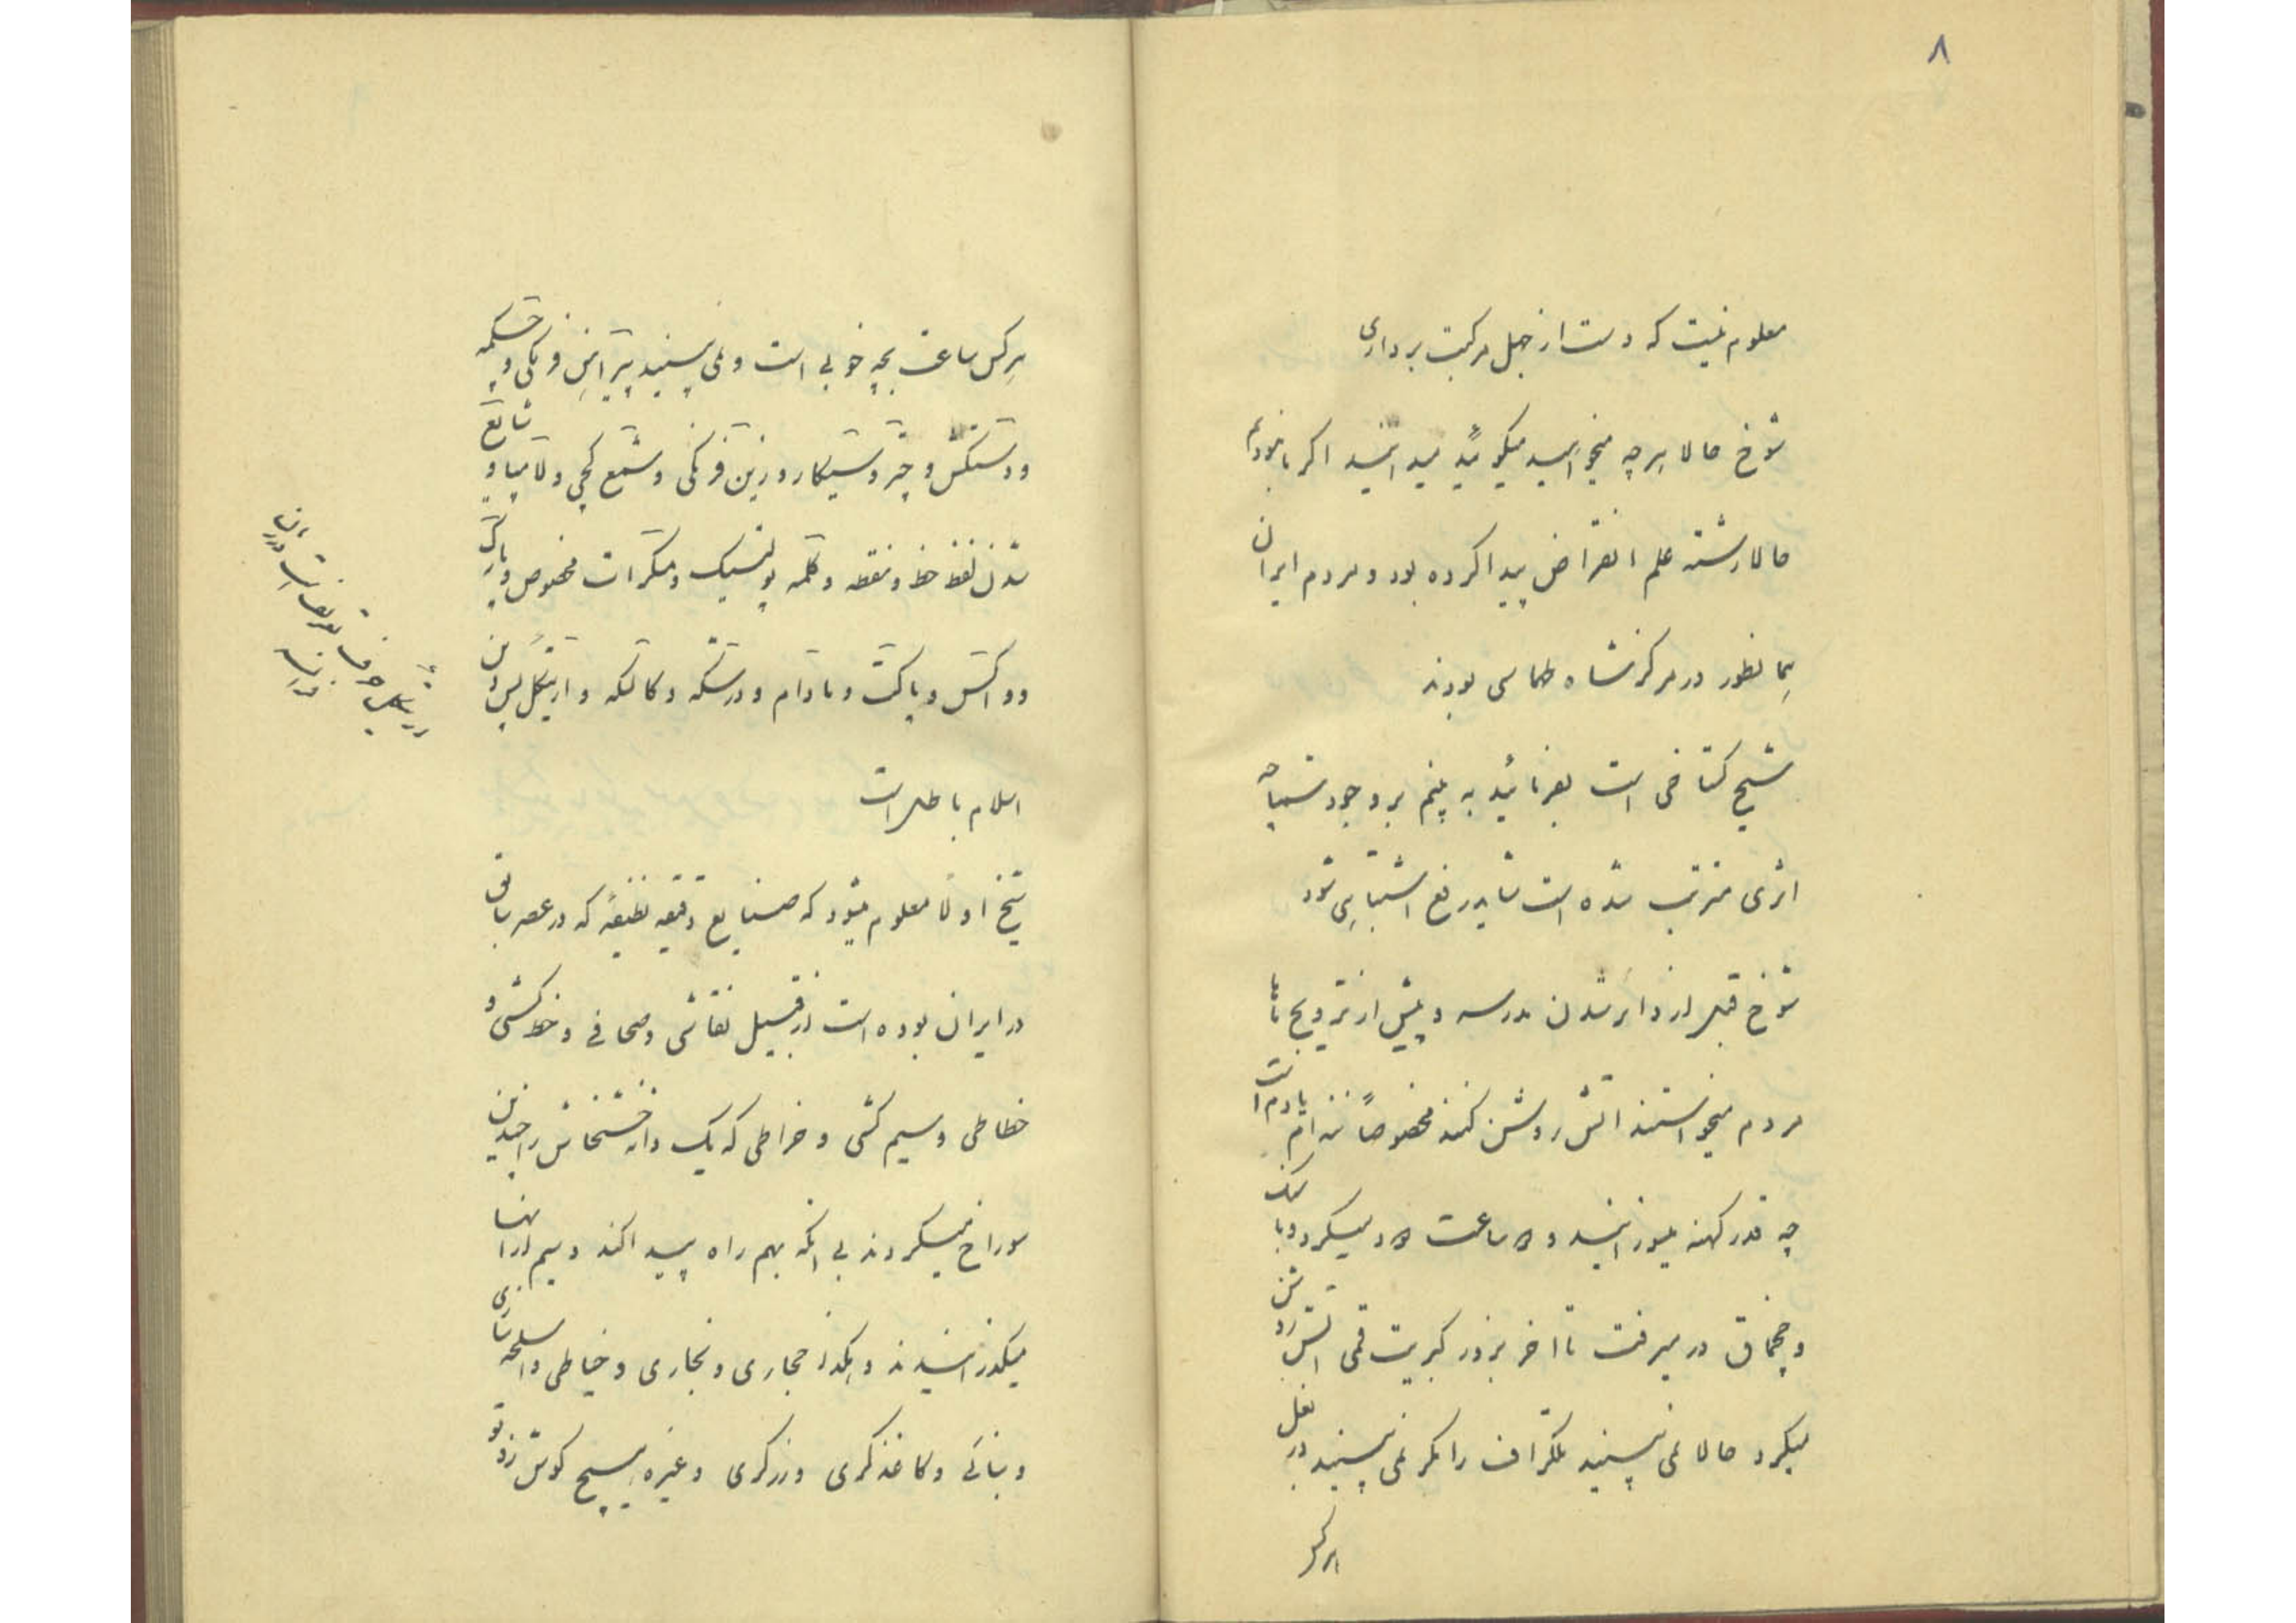 ۸
معلوم نیست که دست از جهل مرکبت برداری
شوخ حالا هرچه میخواهید میگوئید میدانید اگر ما نبودیم
حالا رشته علم انقراض پیدا کرده بود و مردم ایران
همانطور در مرکز شاه طهماسی بودند
شیخ گستاخی است بفرمائید به بینم بر وجود شما چه
اثری مترتب شده است شاید رفع اشتباهی شود
شوخ قبل از دایر شدن مدرسه و پیش از ترویج ماها
مردم میخواستند اتش روشن کنند مخصوصاً ننه ام یادم است
چه قدر کهنه میسوزانید و ۵ ساعت ۵ود میکرد و با سنک
و چخماق در میرفت تا اخر بزور کبریت قمی اتش روشن
میکرد حالا نمی بینید تلگراف را مگر نمی بینید در بغل
هرکس
هرکس ساعت بچه خوبی است و نمی بینید پیراهن فرنگی و چکمه
و دستکش و چتر و سیگار و زین فرنگی و شمع گچی و لامپا و شایع
شدن لفظ خط و نقطه و کلمه پولتیک و مسکرات مخصوص و پارک
و واکس و پاکت و مادام و درشکه و کالسکه و ارتیکل پس دین
اسلام باطل است
شیخ اولا معلوم میشود که صنایع دقیقه نظیفهٔ که در عصر سابق
در ایران بوده است از قبیل نقاشی و صحافی و خط کشی و
خطاطی و سیم کشی و خراطی که یک دانه خشخاش را چندین
سوراخ میکردند بی انکه بهم راه پیدا کند و سیم از انها
میگذرانیدند و هکذا حجاری و نجاری و خیاطی و اسلحه سازی
و بنائی و کاغذگری و زرگری و غیره هیچ گوش زد تو